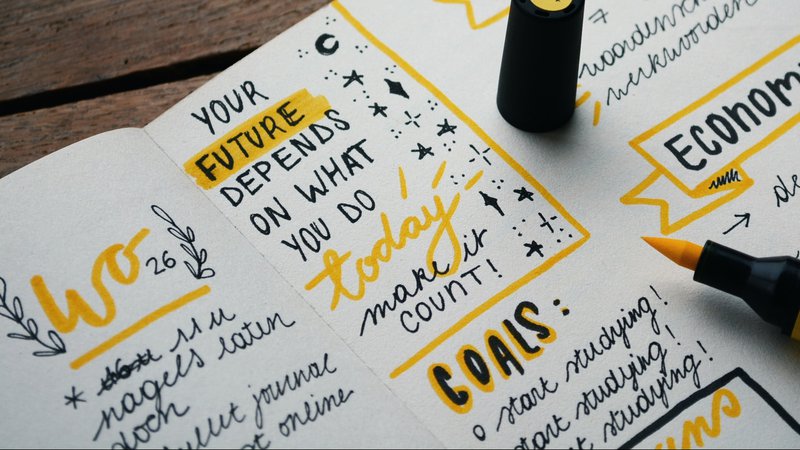 YOUR
FUTURE
DEPENDS
ON WHAT
YOU DO
today
make it
COUNT!
Wo 26
* 11 u
nagels laten
doch
bullet journal
online
GOALS:
o start studying!
start studying!
studying!
woordensch
werkwoorden
Economy
→ de